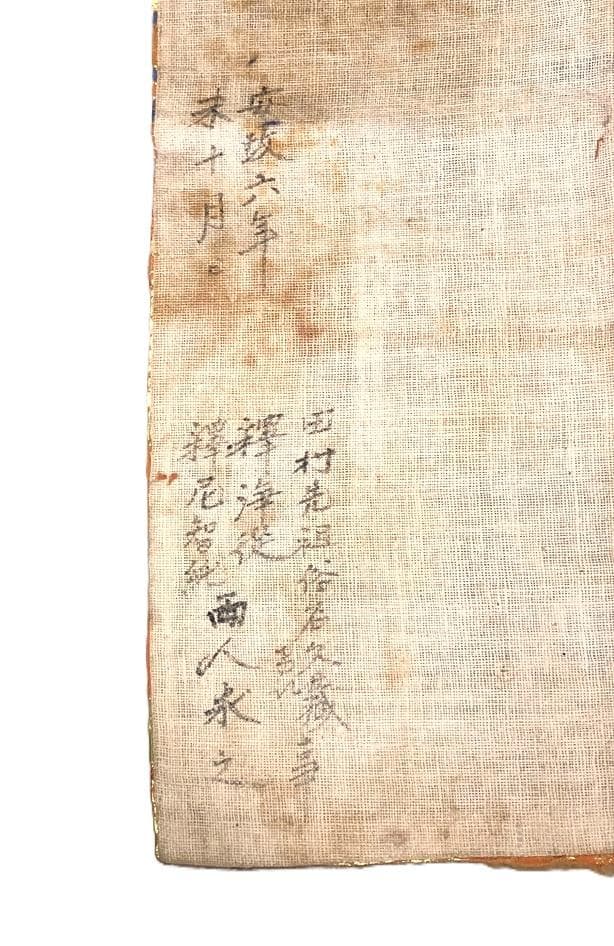 安政六年
未十月
田村先祖俗名久藏事
釋海從
釋尼智
両人求之